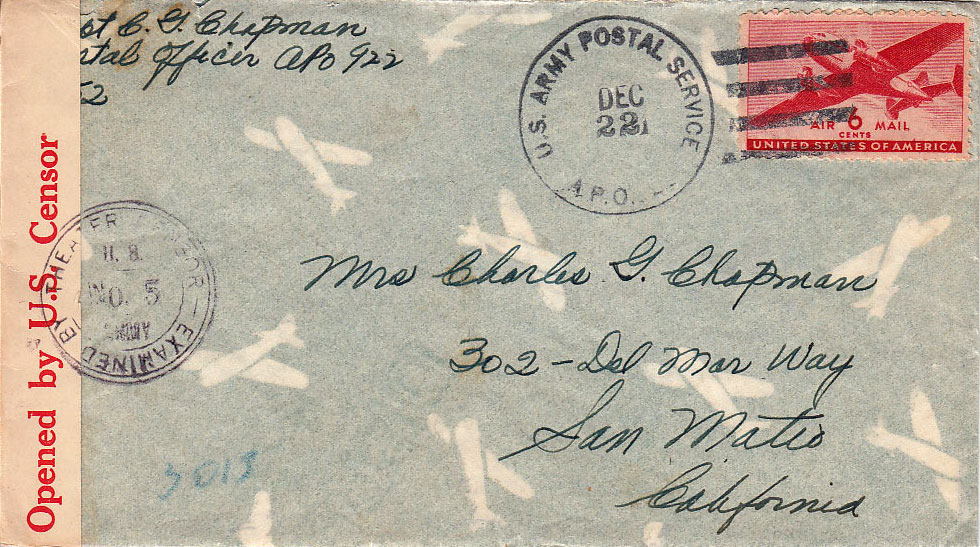 pt C. G. Chapman
stal Officer APO 922
52
U.S. ARMY POSTAL SERVICE
DEC
22
A.P.O.
AIR 6 MAIL
CENTS
UNITED STATES OF AMERICA
Opened by U.S. Censor
EXAMINED BY THEATER
U.S.
NO. 5
ARMY
Mrs Charles G. Chapman
302 - Del Mar Way
San Mateo
California
5013